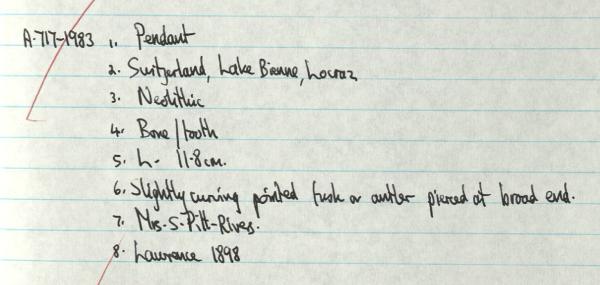 A·717-1983 1. Pendant
2. Switzerland, Lake Bienne, Locraz
3. Neolithic
4. Bone/tooth
5. L- 11·8cm.
6. Slightly curving pointed tusk or antler pierced at broad end.
7. Mrs·S·Pitt-Rivers.
8. Lawrence 1898